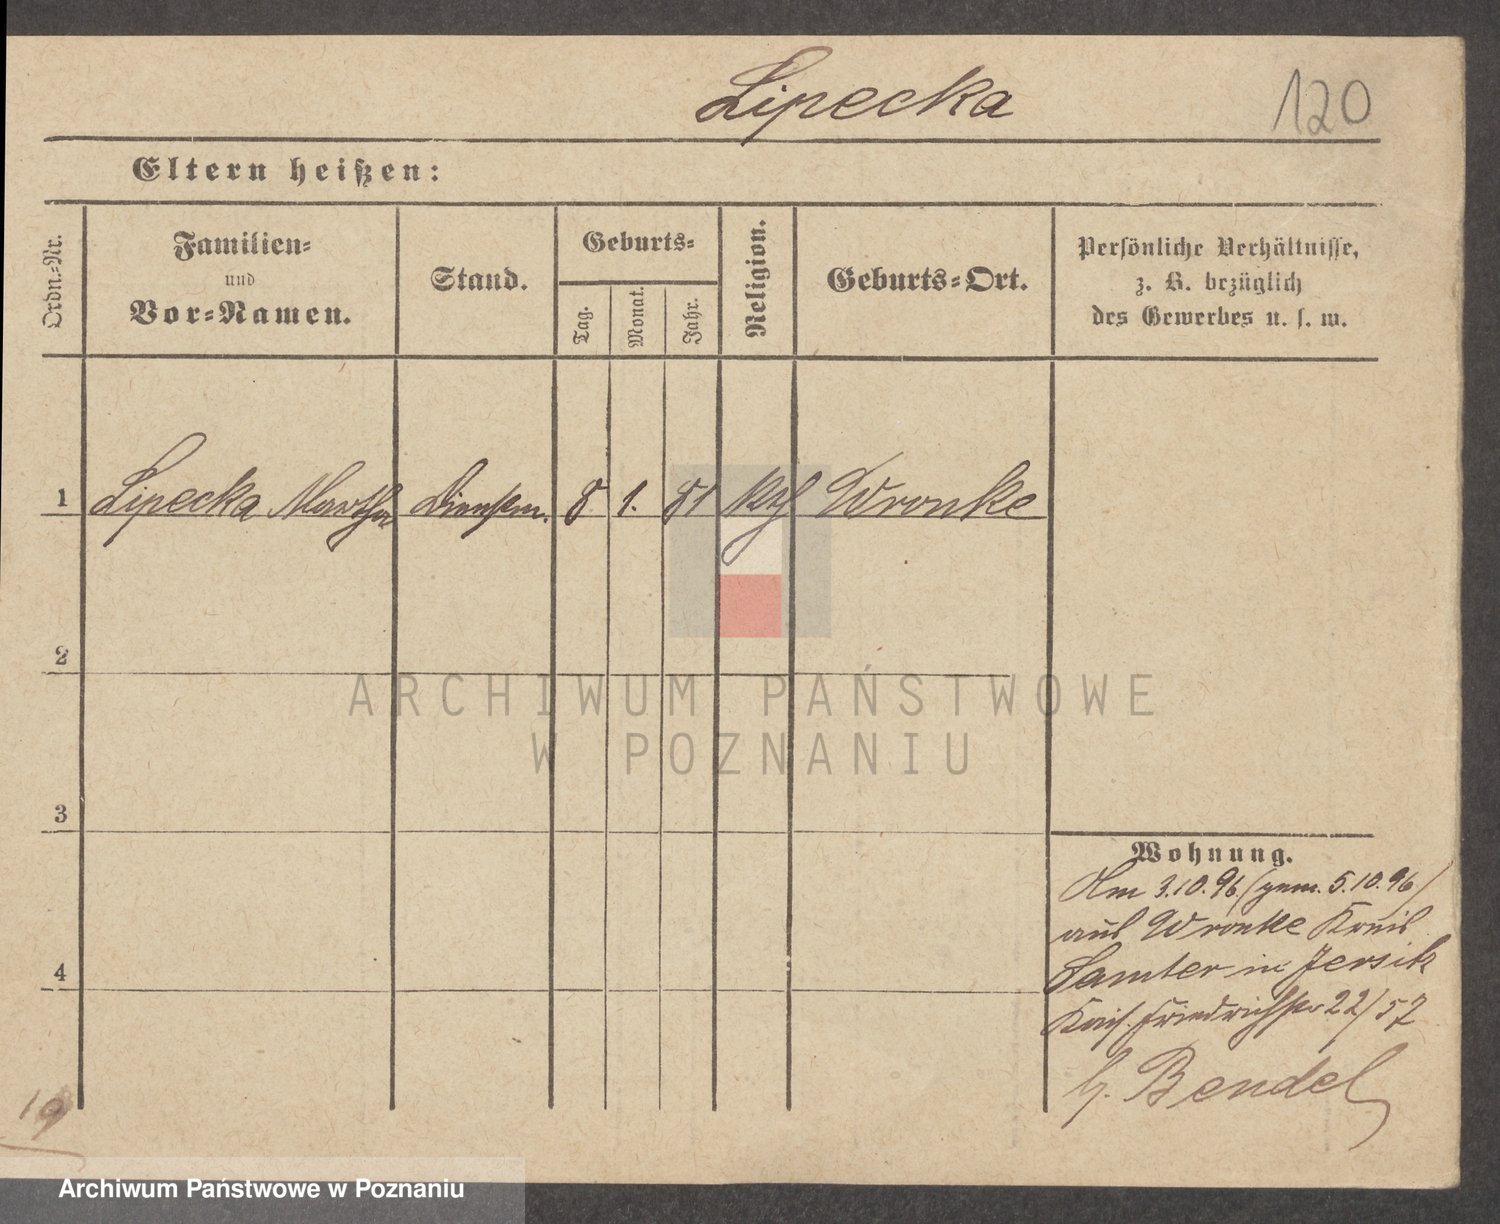 Lipecka
120
Eltern heißen:
Ordn.=Nr.
Familien=
und
Vor=Namen.
Stand.
Geburts=
Tag.
Monat.
Jahr.
Religion.
Geburts=Ort.
Persönliche Verhältnisse,
z. B. bezüglich
des Gewerbes u. s. w.
1 Lipecka Martha Dienstm. 8. 1. 81 kth Wronke
2
3
4
Wohnung.
Am 3.10.96 (gem. 5.10.96)
aus Wronke Kreis
Samter in Jersik
Kais. Friedrichstr 22/57
b. Bendel
19
ARCHIWUM PAŃSTWOWE
W POZNANIU
Archiwum Państwowe w Poznaniu